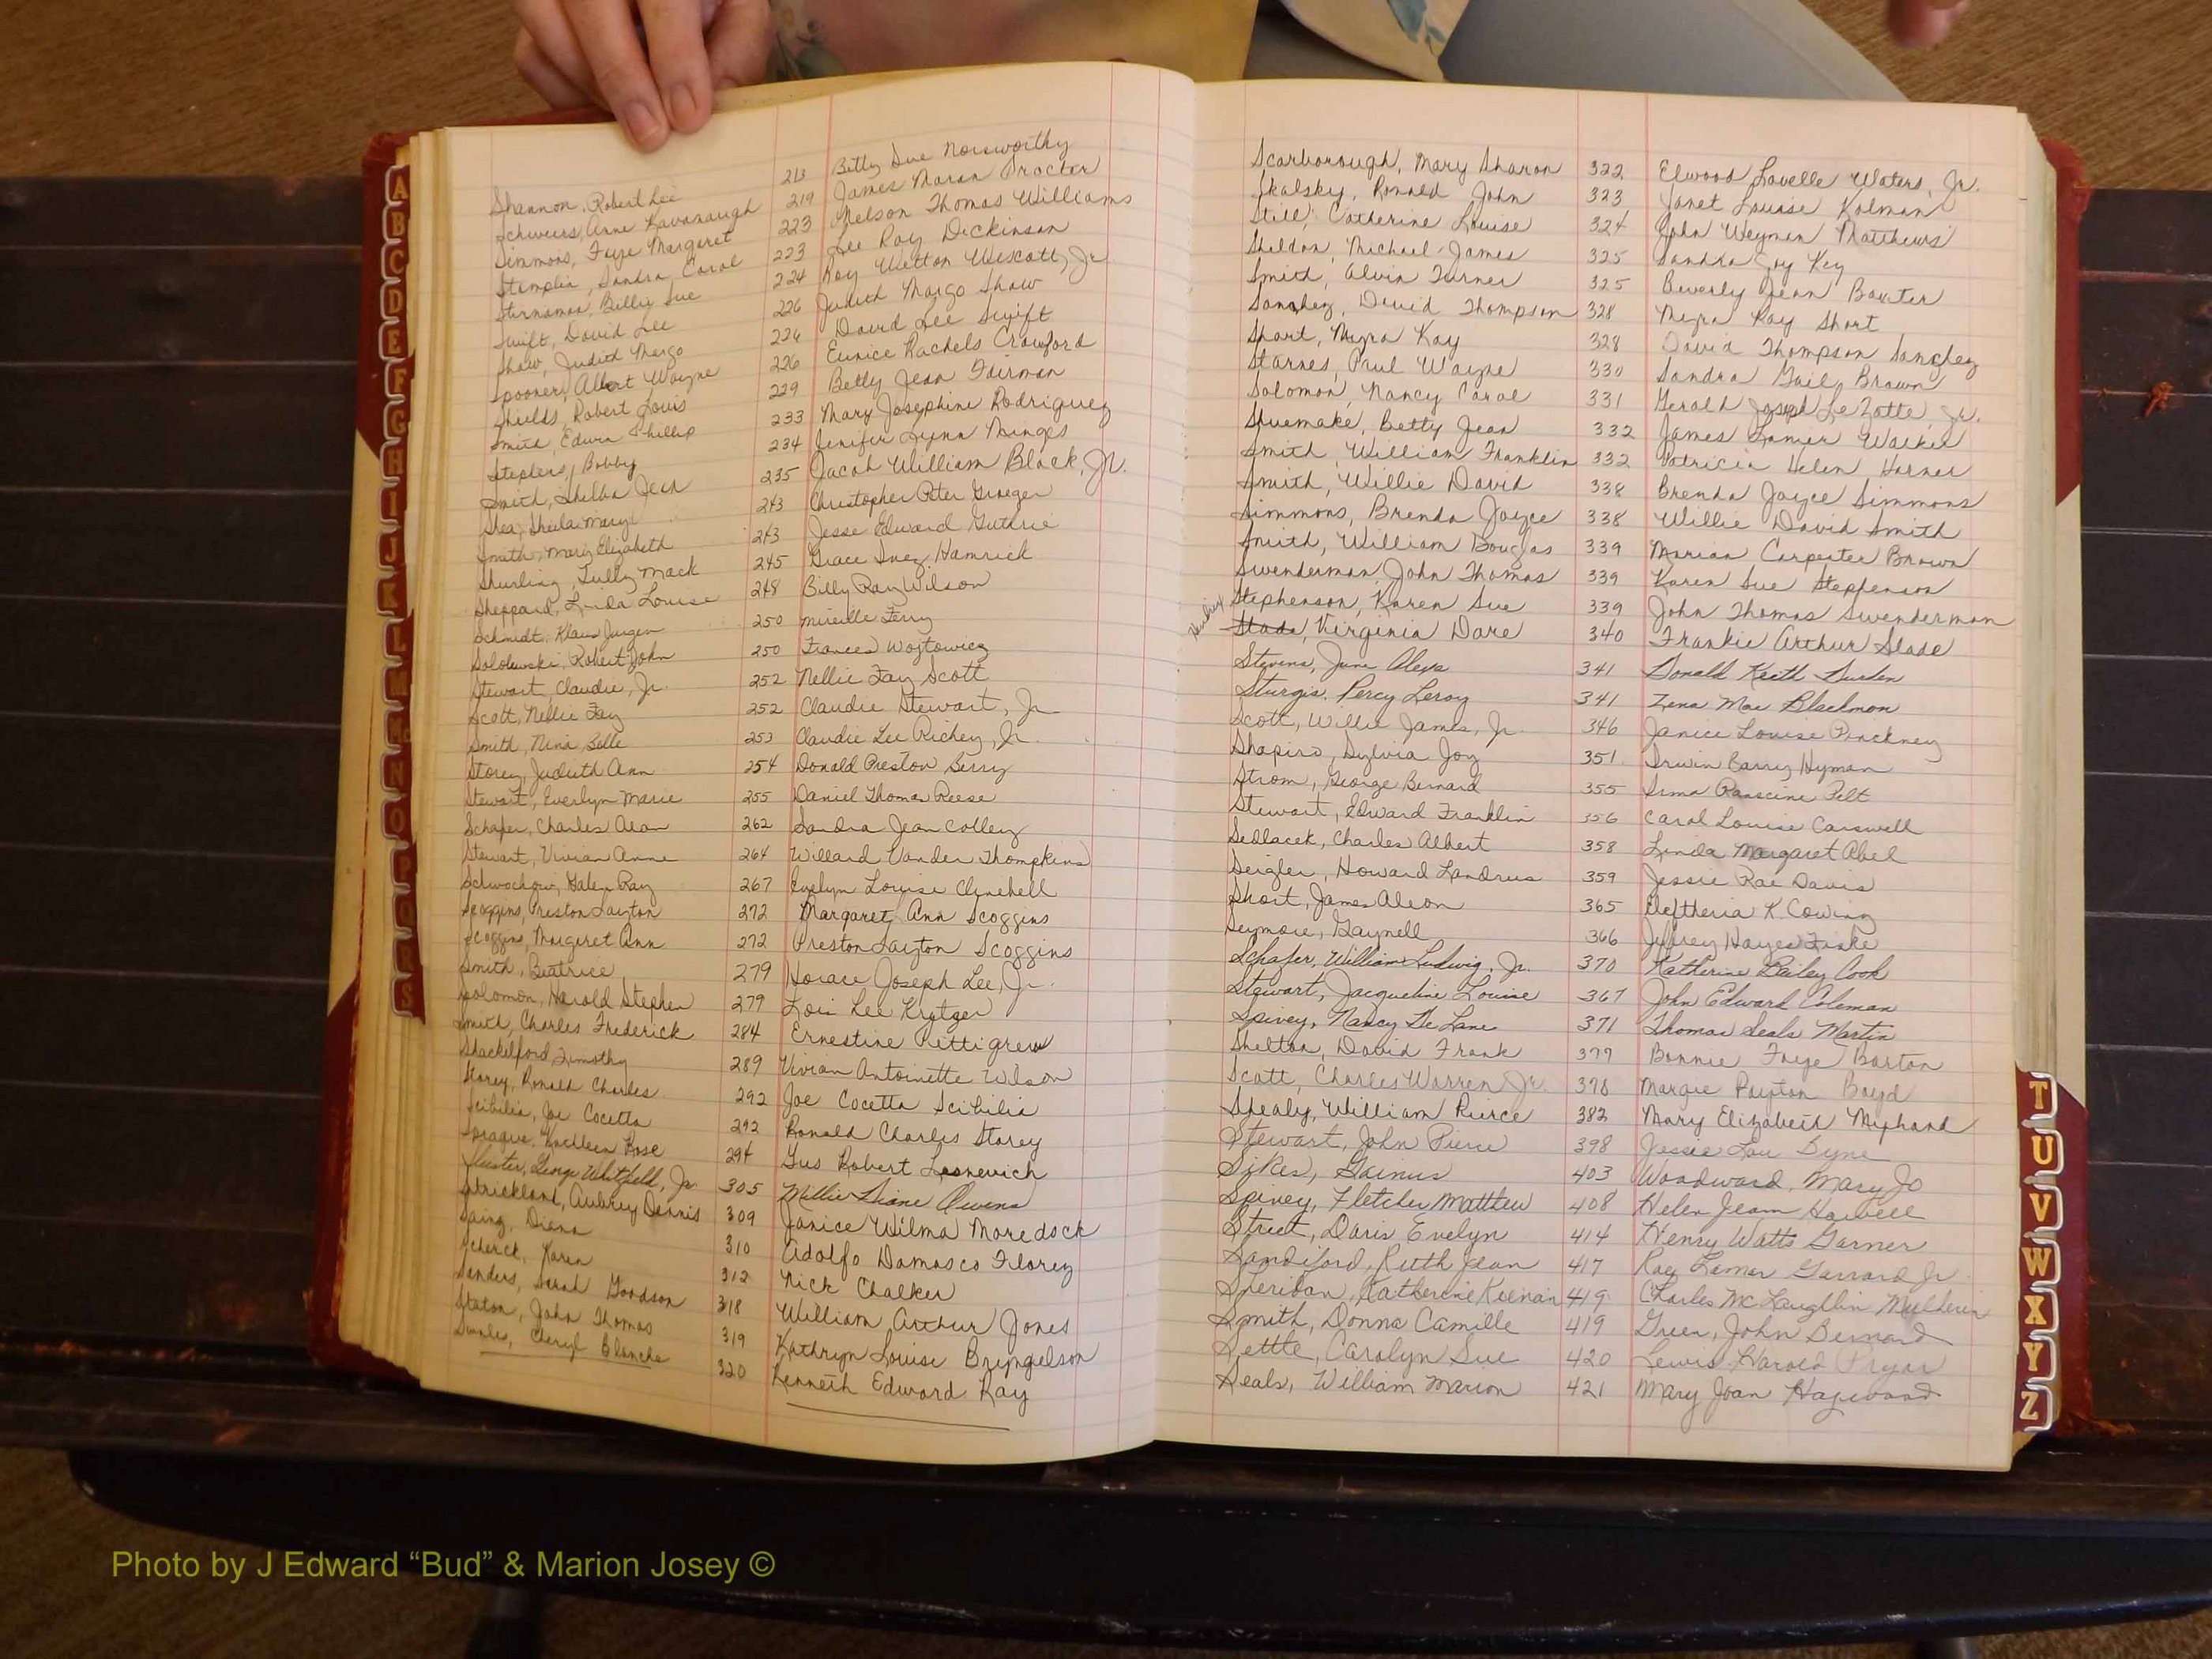 Shannon, Robert Lee 213 Betty Sue Norsworthy
Schweers, Anne Kavanaugh 219 James Maran Procter
Simmons, Faye Margaret 223 Nelson Thomas Williams
Stemplin, Sandra Carol 223 Lee Roy Dickinson
Sturnaman, Billie Sue 224 Roy Wetton Wescott, Jr
Swift, David Lee 226 Judith Margo Shaw
Shaw, Judith Margo 226 David Lee Swift
Spooner, Albert Wayne 226 Eunice Rachels Crawford
Shields, Robert Louis 229 Betty Jean Fairman
Smith, Edwin Phillip 233 Mary Josephine Rodriguez
Stephens, Bobby 234 Jenifer Lynn Minges
Smith, Shelba Jean 235 Jacob William Black, Jr.
Shea, Sheila Mary 243 Christopher Peter Graeger
Smith, Mary Elizabeth 243 Jesse Edward Guthrie
Shurling, Tully Mack 245 Grace Inez Hamrick
Sheppard, Linda Louise 248 Billy Ray Wilson
Schmidt, Klaus Jurgen 250 Mireille Ferry
Sololewski, Robert John 250 Frances Wojtowicz
Stewart, Claudie, Jr. 252 Nellie Fay Scott
Scott, Nellie Fay 252 Claudie Stewart, Jr
Smith, Nina Belle 253 Claudie Lee Richey, Jr.
Storey, Judith Ann 254 Donald Preston Berry
Stewart, Everlyn Marie 255 Daniel Thomas Reese
Schafer, Charles Alan 262 Sandra Jean Colley
Stewart, Vivian Anne 264 Willard Vander Thompkins
Schwochow, Galen Ray 267 Evelyn Louise Clinehell
Scoggins, Preston Layton 272 Margaret Ann Scoggins
Scoggins, Margaret Ann 272 Preston Layton Scoggins
Smith, Beatrice 279 Horace Joseph Lee, Jr.
Solomon, Harold Stephen 279 Lois Lee Krytzer
Smith, Charles Frederick 284 Ernestine Pettigrew
Shackelford, Timothy 289 Vivian Antoinette Wilson
Storey, Ronald Charles 292 Joe Cocetta Scibilia
Scibilia, Joe Cocetta 292 Ronald Charles Storey
Sprague, Kathleen Rose 294 Gus Robert Lesnevich
George Whitfield, Jr. 305 Millie Diane Owens
Strickland, Aubrey Dennis 309 Janice Wilma Moredock
Saing, Diana 310 Adolfo Damasco Florez
Scherck, Karen 312 Nick Chalker
Sanders, Sarah Goodson 318 William Arthur Jones
Staton, John Thomas 319 Kathryn Louise Bryngelson
Swales, Cheryl Blanche 320 Kenneth Edward Ray
Scarborough, Mary Sharon 322 Elwood Lavelle Waters, Jr.
Skalsky, Ronald John 323 Janet Louise Kolman
Still, Catherine Louise 324 John Weyman Matthews
Sheldon, Michael James 325 Sandra Joy Key
Smith, Alvin Turner 325 Beverly Jean Baxter
Sanchez, David Thompson 328 Myra Kay Short
Short, Myra Kay 328 David Thompson Sanchez
Starnes, Paul Wayne 330 Sandra Gail Brown
Solomon, Nancy Carol 331 Gerald Joseph LeZotte, Jr.
Shuemake, Betty Jean 332 James Lanier Walker
Smith, William Franklin 332 Patricia Helen Horner
Smith, Willie David 338 Brenda Jayce Simmons
Simmons, Brenda Jayce 338 Willie David Smith
Smith, William Douglas 339 Marian Carpenter Brown
Swenderman, John Thomas 339 Karen Sue Stephenson
Stephenson, Karen Sue 339 John Thomas Swenderman
Slade, Virginia Dare 340 Frankie Arthur Slade
Stevens, June Alexa 341 Donald Keith Burden
Sturgis, Percy Leroy 341 Zena Mae Blackmon
Scott, Willie James, Jr. 346 Janice Louise Pinckney
Shapiro, Sylvia Joy 351 Irwin Barry Hyman
Strom, George Bernard 355 Irma Ranscine Pelt
Stewart, Edward Franklin 356 Carol Louise Carswell
Sedlacek, Charles Albert 358 Linda Margaret Abel
Seigler, Howard Landrus 359 Jessie Rae Davis
Short, James Aleon 365 Eleftheria K. Cowing
Seymore, Gaynell 366 Jeffrey Hayes Finke
Schafer, William Ludwig, Jr. 370 Katherine Bailey Cook
Stewart, Jacqueline Louise 367 John Edward Coleman
Spivey, Nancy De Lane 371 Thomas Seals Martin
Shelton, David Frank 377 Bonnie Faye Barton
Scott, Charles Warren Jr. 378 Margie Payton Boyd
Shealy, William Pierce 382 Mary Elizabeth
Stewart, John Pierce 398 Jessie Lou Dyne
Sikes, Gainus 403 Woodward, Mary Jo
Spivey, Fletcher Matthew 408 Helen Jean Howell
Street, Doris Evelyn 414 Henry Watts Garner
Sandiford, Ruth Jean 417 Roy Lamar Garrard Jr
Sheridan, Katherine Keenan 419 Charles McLaughlin Mulherin
Smith, Donna Camille 419 Green, John Bernard
Settle, Carolyn Sue 420 Lewis Harold Pryor
Seals, William Marion 421 Mary Joan Hagewood
A
B
C
D
E
F
G
H
I
J
K
L
M
Mc
N
O
P
Q
R
S
T
U
V
W
X
Y
Z
Photo by J Edward “Bud” & Marion Josey ©